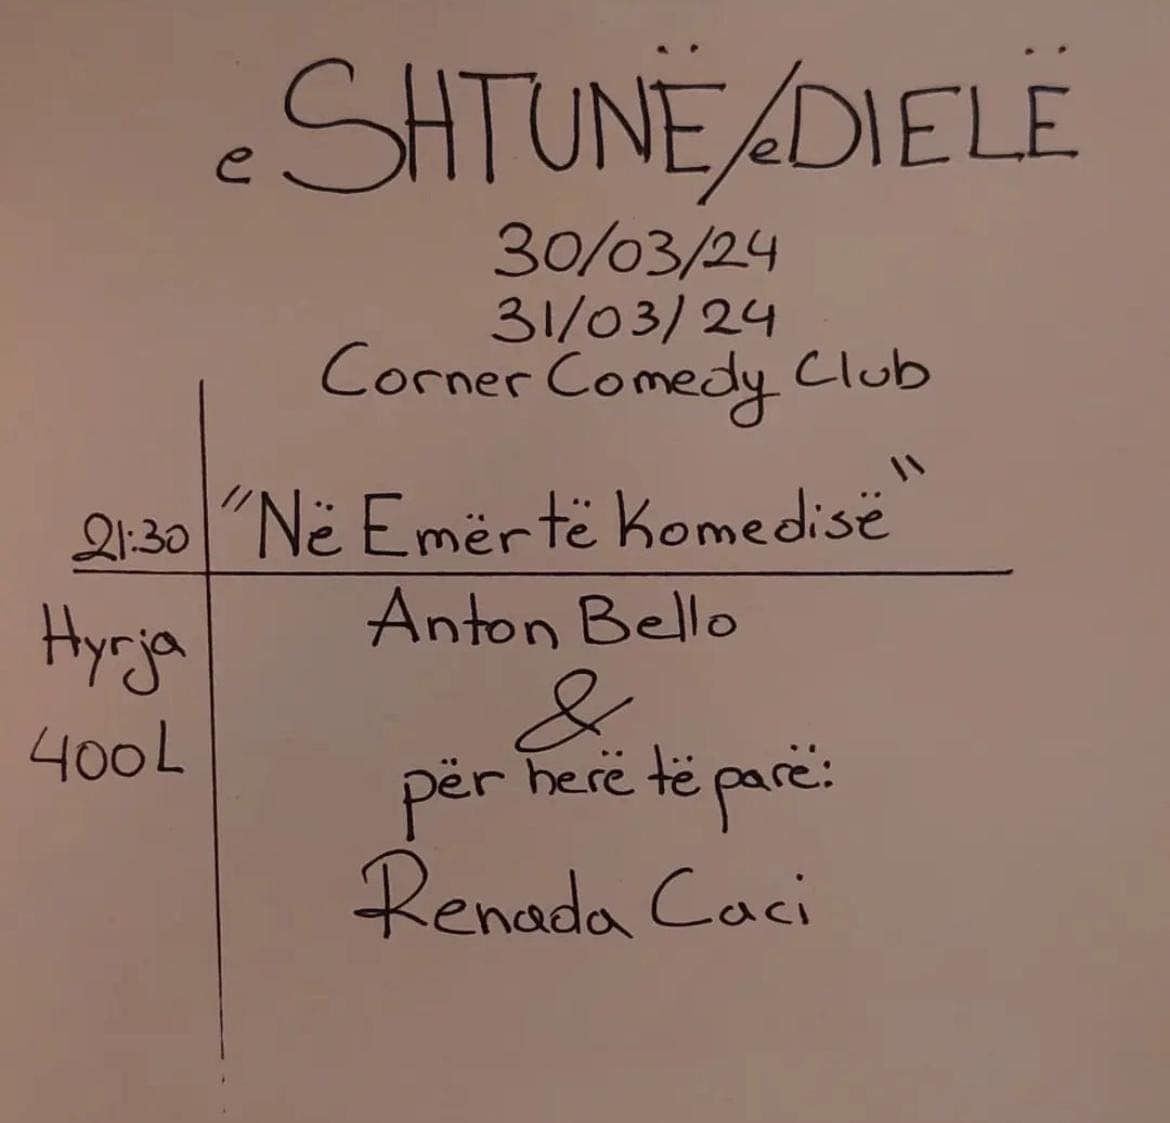 e SHTUNË/e DIELË
30/03/24
31/03/24
Corner Comedy Club
21:30 "Në Emër të Komedisë"
Hyrja
400L
Anton Bello
&
për herë të parë:
Renada Caci